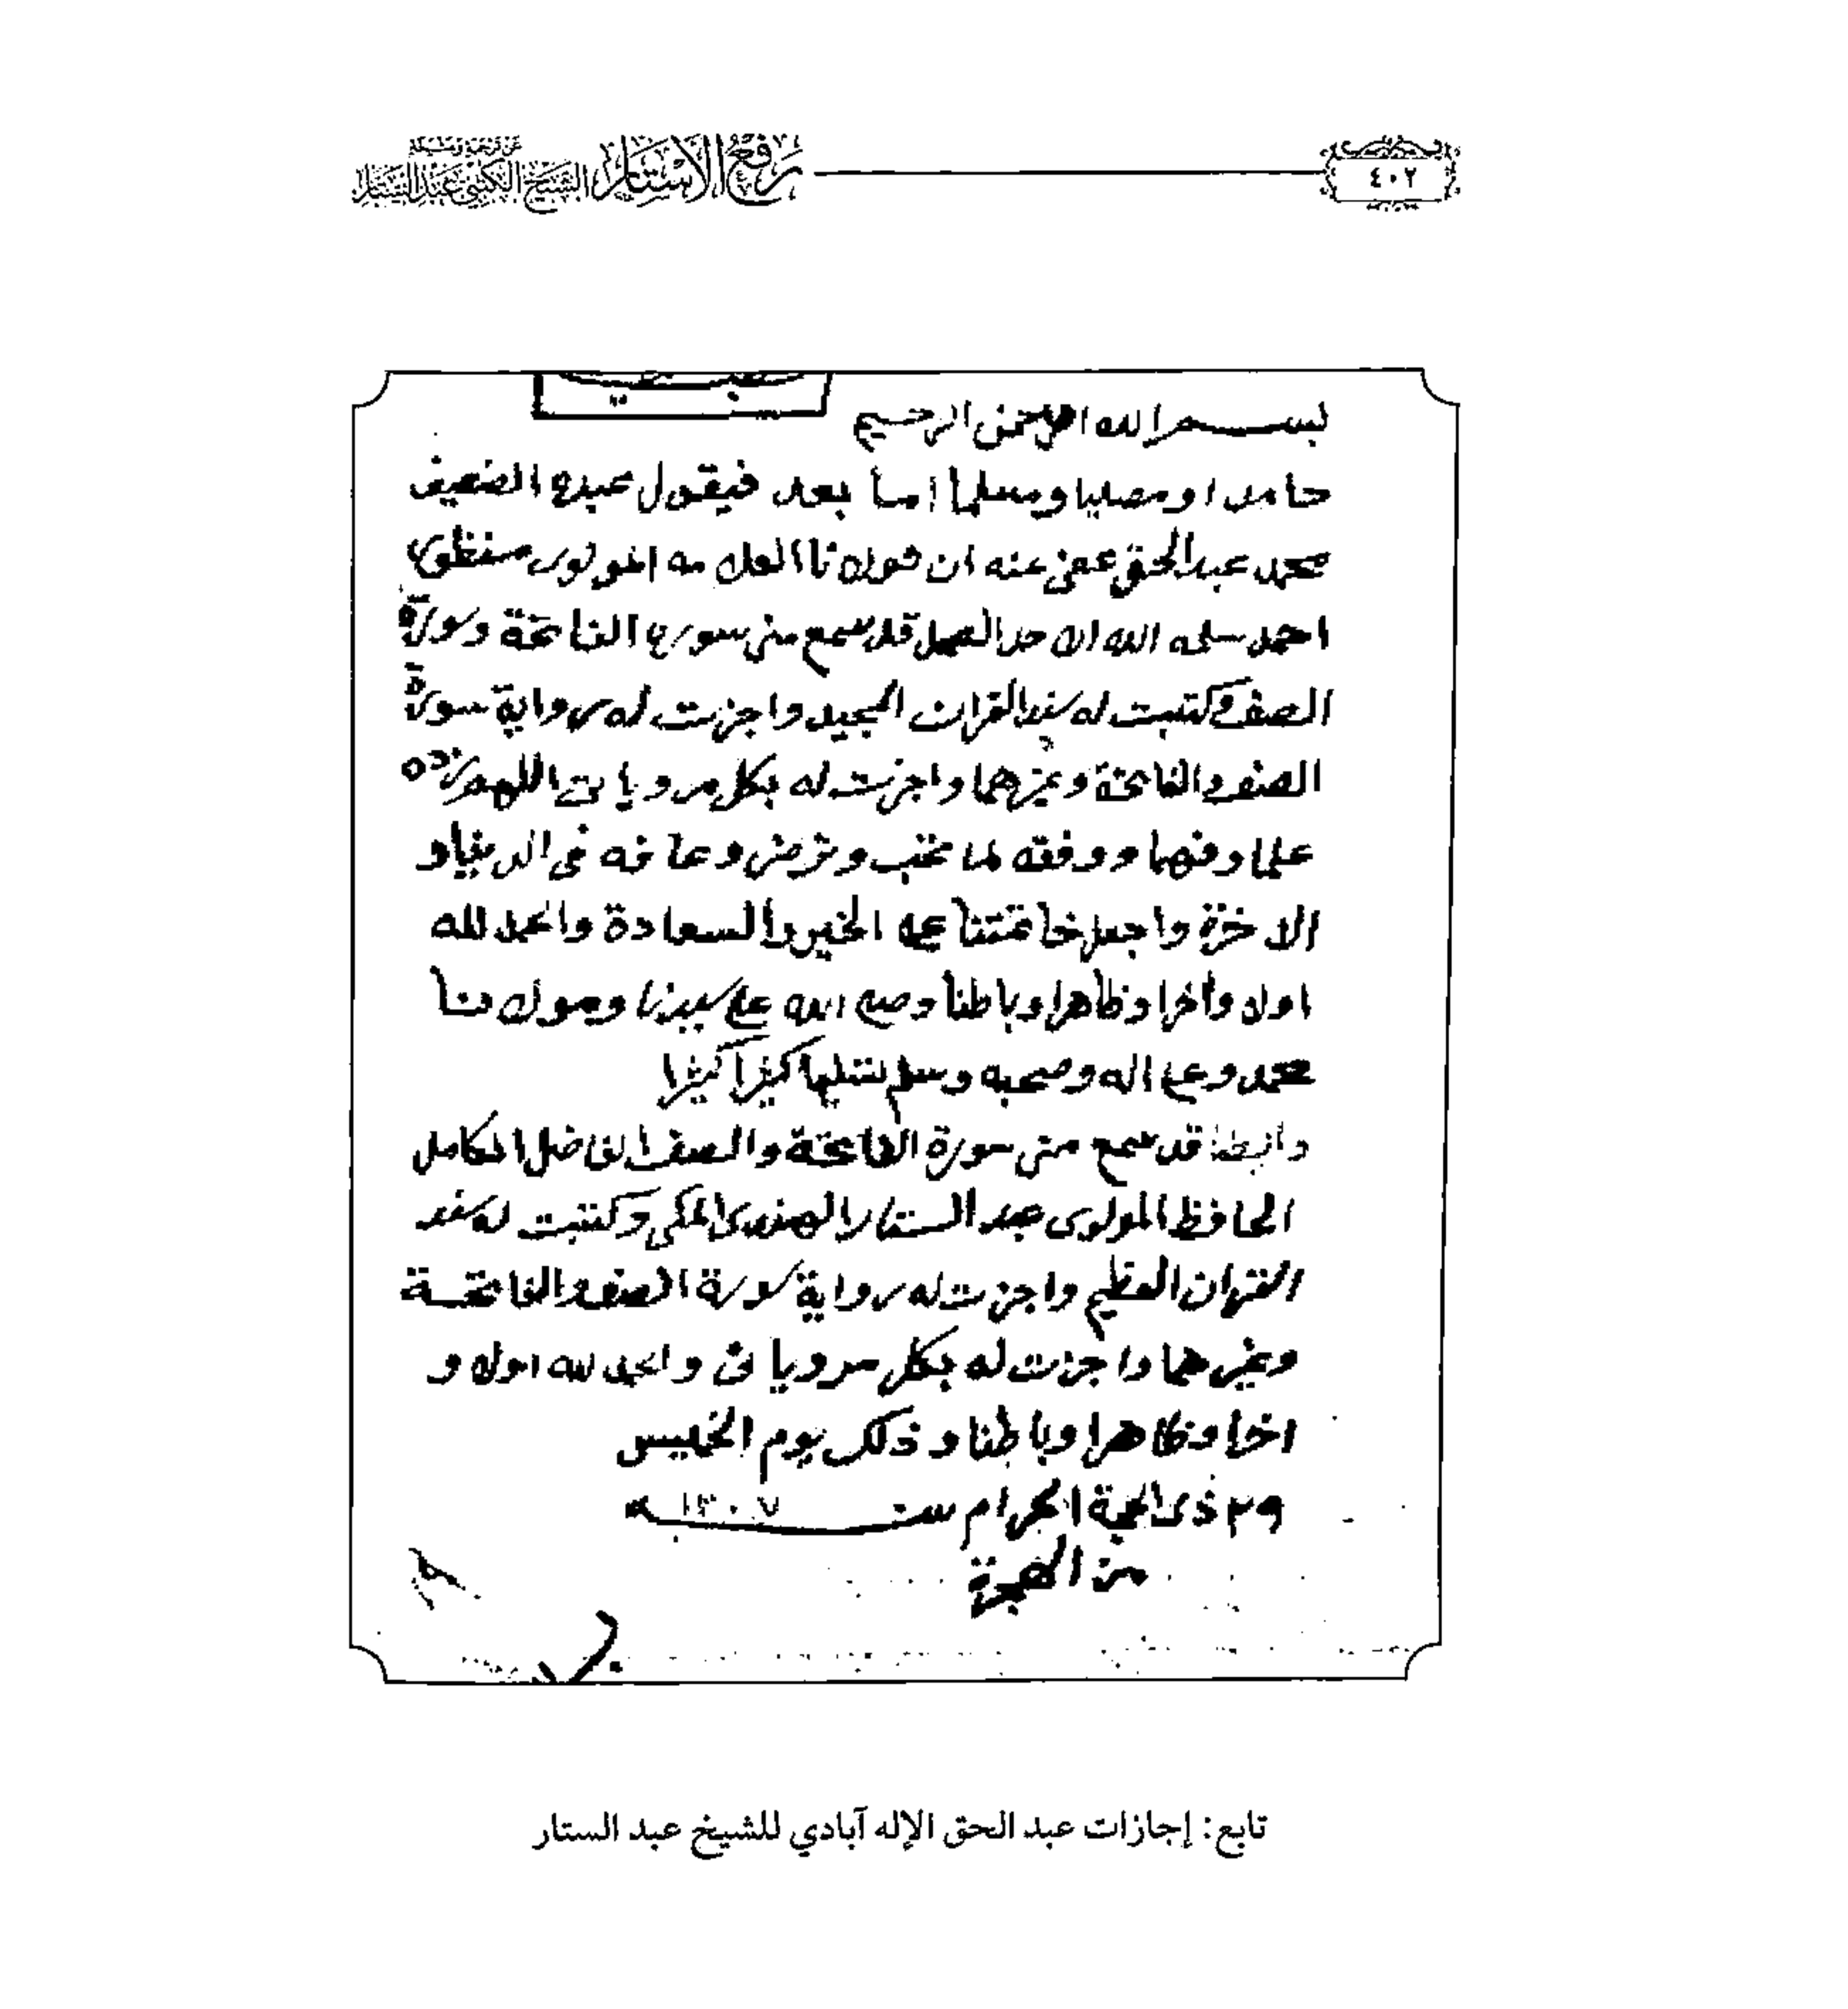 ٤٠٢
رفع الأستار
الشيخ الكتبي عبد الستار
بسم الله الرحمن الرحيم
حامدا ومصليا ومسلما اما بعد فيقول عبده الضعيف
محمد عبدالحق عفى عنه ان مولانا العلامه المولوى
احمد سلمه الله الاحد الصمد قد سمع منى سورة الفاتحة وسورة
الصف وكتبت له سند القران المجيد واجزت له رواية سورة
الصف والفاتحة وغيرهما واجزت له بكل مروياتى اللهم زده
علما وفهما ووفقه لما تحب وترضى وعافه فى الدنيا و
الاخرة واجعل خاتمتنا على الخير والسعادة والحمد لله
اولا وآخرا وظاهرا وباطنا وصلى الله على سيدنا ومولانا
محمد وعلى اله وصحبه وسلم تسليما كثيرا كثيرا
وايضا قد سمع منى سورة الفاتحة والصف الفاضل الكامل
الحافظ المولوى عبد الستار الهندى المكى وكتبت له سند
القران العظيم واجزت له رواية سورة الصف والفاتحة
وغيرهما واجزت له بكل مروياتى والحمد لله اولا و
اخرا وظاهرا وباطنا وذلك يوم الخميس
٢٩ ذى الحجة الحرام سنه ١٣٠٧
من الهجرة
تابع: إجازات عبد الحق الإله آبادي للشيخ عبد الستار